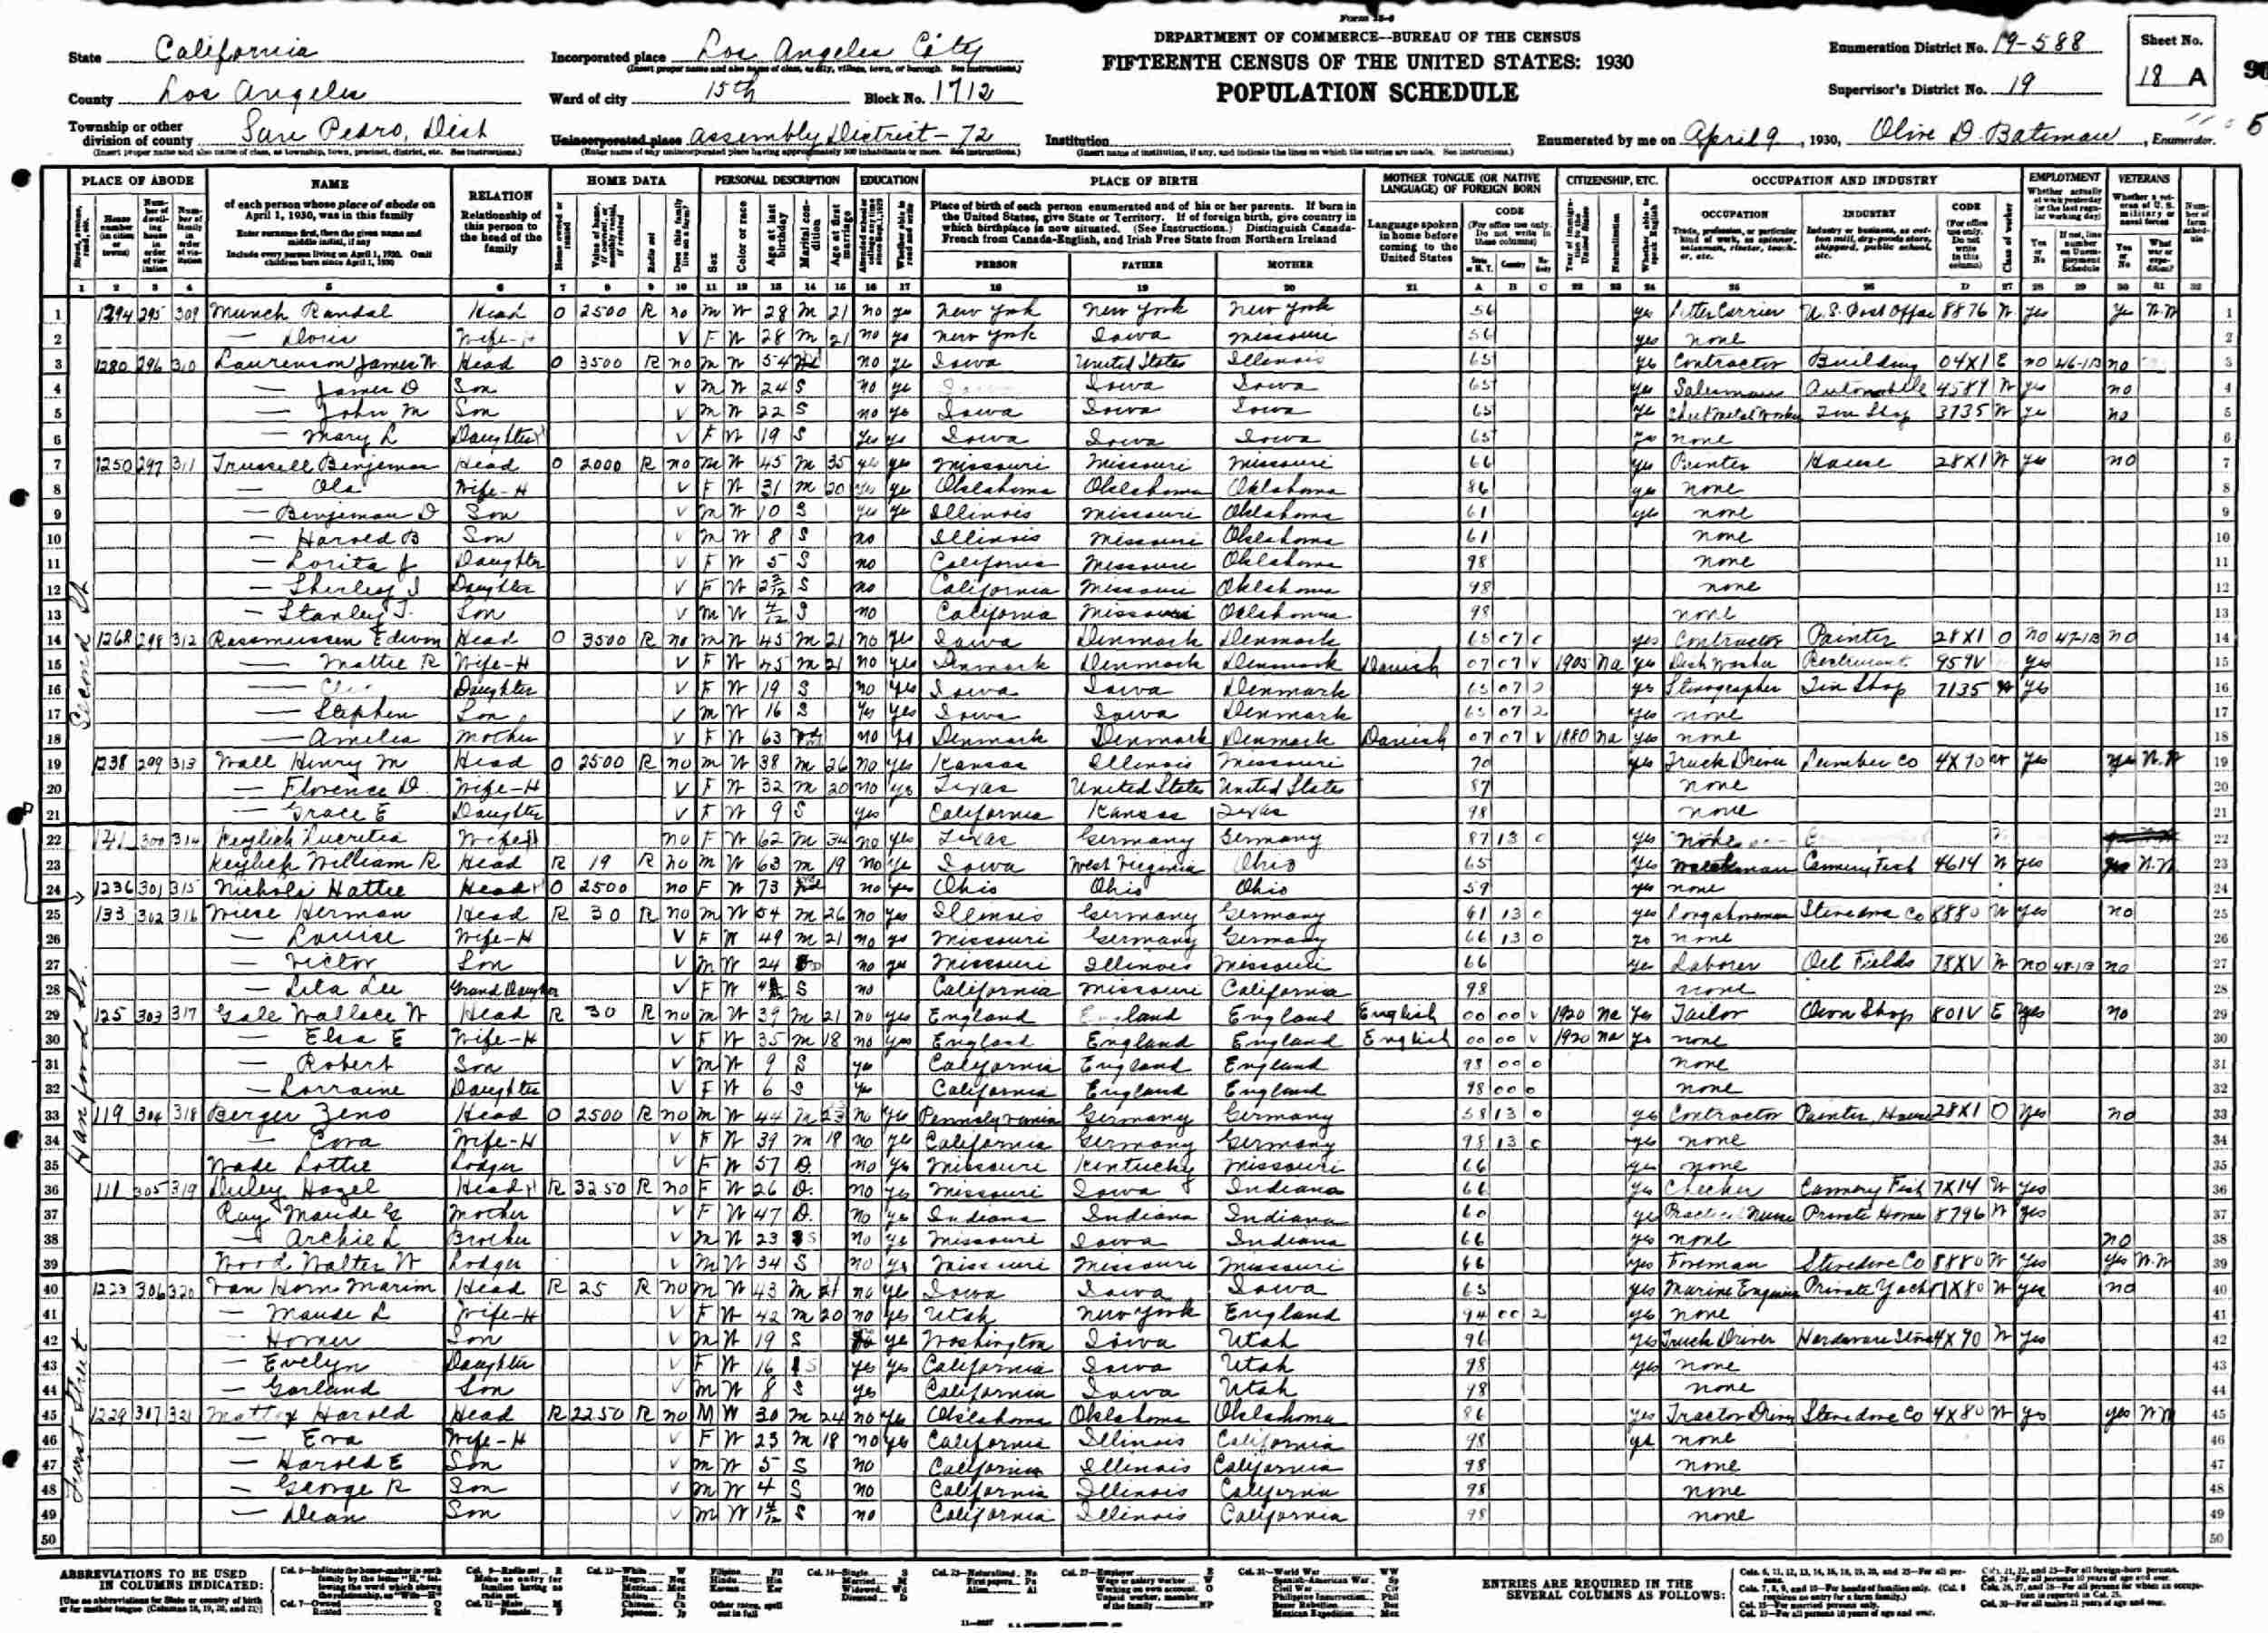 Form 15-6
DEPARTMENT OF COMMERCE—BUREAU OF THE CENSUS
FIFTEENTH CENSUS OF THE UNITED STATES: 1930
POPULATION SCHEDULE
State California
County Los Angeles
Township or other division of county San Pedro, Dist
Incorporated place Los Angeles City
Ward of city 15th Block No. 1712
Unincorporated place Assembly District - 72
Institution
Enumeration District No. 19-588
Supervisor's District No. 19
Sheet No. 18 A
Enumerated by me on April 9, 1930, Olive D. Bateman, Enumerator.
PLACE OF ABODE NAME RELATION HOME DATA PERSONAL DESCRIPTION EDUCATION PLACE OF BIRTH MOTHER TONGUE (OR NATIVE LANGUAGE) OF FOREIGN BORN CITIZENSHIP, ETC. OCCUPATION AND INDUSTRY EMPLOYMENT VETERANS
of each person whose place of abode on April 1, 1930, was in this family
Enter surname first, then the given name and middle initial, if any
Include every person living on April 1, 1930. Omit children born since April 1, 1930
Relationship of this person to the head of the family
Place of birth of each person enumerated and of his or her parents. If born in the United States, give State or Territory. If of foreign birth, give country in which birthplace is now situated. (See Instructions.) Distinguish Canada-French from Canada-English, and Irish Free State from Northern Ireland
PERSON FATHER MOTHER
Language spoken in home before coming to the United States
CODE
OCCUPATION INDUSTRY CODE
1 1294 295 309 Munch Randal Head O 2500 R no M W 28 M 21 no yes New York New York New York 56 yes Letter Carrier U.S. Post Office 8876 W yes yes WW
2 — Doris Wife-H V F W 28 M 21 no yes New York Iowa Missouri 56 yes none
3 1280 296 310 Laurenson James W Head O 3500 R no M W 54 Wd no yes Iowa United States Illinois 65 yes Contractor Building 04X1 E no 46-1B no
4 — James D Son V M W 24 S no yes Iowa Iowa 65 yes Salesman Automobile 4587 W yes no
5 — John M Son V M W 22 S no yes Iowa Iowa Iowa 65 yes Sheet Metal Worker Tin Shop 3735 W yes no
6 — Mary L Daughter V F W 19 S yes yes Iowa Iowa Iowa 65 yes none
7 1250 297 311 Trussell Benjeman Head O 2000 R no M W 45 M 35 yes yes Missouri Missouri Missouri 66 yes Painter House 28X1 W yes no
8 — Ola Wife-H V F W 31 M 20 yes yes Oklahoma Oklahoma Oklahoma 86 yes none
9 — Benjeman D Son V M W 10 S yes yes Illinois Missouri Oklahoma 61 yes none
10 — Harold B Son V M W 8 S no Illinois Missouri Oklahoma 61 none
11 — Lorita J Daughter V F W 5 S no California Missouri Oklahoma 98 none
12 — Sherley J Daughter V F W S no California Missouri Oklahoma 98 none
13 — Stanley T. Son V M W S no California Missouri Oklahoma 98 none
14 1268 298 312 Rassmussen Edwin Head O 3500 R no M W 45 M 21 no yes Iowa Denmark Denmark 65 07 0 yes Contractor Painter 28X1 O no 47-1B no
15 — Mattie R Wife-H V F W 45 M 21 no yes Denmark Denmark Denmark Danish 07 07 V 1905 na yes Dish Washer Resturant 959V yes
16 — Daughter V F W 19 S no yes Iowa Iowa Denmark 65 07 2 yes Stenographer Tin Shop 7135 W yes
17 — Stephen Son V M W 16 S yes yes Iowa Iowa Denmark 65 07 2 yes none
18 — Amelia Mother V F W 63 Wd no yes Denmark Denmark Denmark Danish 07 07 V 1880 na yes none
19 1238 299 313 Wall Henry M Head O 2500 R no M W 38 M 26 no yes Kansas Illinois Missouri 70 yes Truck Driver Lumber Co 4X70 W yes yes WW
20 — Florence D. Wife-H V F W 32 M 20 no yes Texas United States United States 87 none
21 — Grace E Daughter V F W 9 S yes California Kansas Texas 98 none
22 141 300 314 Keylich Lucretia Wife H no F W 62 M 34 no yes Texas Germany Germany 87 13 0 yes none
23 Keylich William R Head R 19 R no M W 63 M 19 no yes Iowa West Virginia Ohio 65 yes Watchman Cannery Fish 4614 W yes
24 1236 301 315 Nichols Hattie Head O 2500 no F W 73 Wd no yes Ohio Ohio Ohio 59 yes none
25 133 302 316 Wiese Herman Head R 30 R no M W 54 M 26 no yes Illinois Germany Germany 61 13 0 yes Longshoreman Stevedore Co 8880 W yes no
26 — Louise Wife-H V F W 49 M 21 no yes Missouri Germany Germany 66 13 0 yes none
27 — Victor Son V M W 24 D no yes Missouri Illinois Missouri 66 yes Laborer Oil Fields 78XV W no 48-1B no
28 — Lila Lee Grand Daughter V F W S no California Missouri California 98 none
29 125 303 317 Gale Wallace W Head R 30 R no M W 39 M 21 no yes England England England English 00 00 V 1920 na yes Tailor Own Shop 801V E yes no
30 — Elsa E Wife-H V F W 35 M 18 no yes England England England English 00 00 V 1920 na yes none
31 — Robert Son V M W 9 S yes California England England 98 00 0 none
32 — Lorraine Daughter V F W 6 S yes California England England 98 00 0 none
33 119 304 318 Berger Zeno Head O 2500 R no M W 44 M 23 no yes Pennsylvania Germany Germany 58 13 0 yes Contractor Painter, House 28X1 O yes no
34 — Cora Wife-H V F W 39 M 18 no yes California Germany Germany 98 13 0 yes none
35 Wade Lottie Lodger V F W 57 D. no yes Missouri Kentucky Missouri 66 yes none
36 111 305 319 Duley Hazel Head R 3250 R no F W 26 D. no yes Missouri Iowa Indiana 66 yes Checker Cannery Fish 7X14 W yes
37 Ray Maude G Mother V F W 47 D. no yes Indiana Indiana Indiana 60 yes Practical Nurse Private Home 8796 W yes
38 — Archie L Brother V M W 23 S no yes Missouri Iowa Indiana 66 yes none no
39 Wood Walter W Lodger V M W 34 S no yes Missouri Missouri Missouri 66 yes Foreman Stevedore Co 8880 W yes yes WW
40 1223 306 320 Van Horn Marim Head R 25 R no M W 43 M 21 no yes Iowa Iowa Iowa 65 yes Marine Engineer Private Yacht 7X80 W yes no
41 — Maude L Wife-H V F W 42 M 20 no yes Utah New York England 94 00 2 yes none
42 — Homer Son V M W 19 S no ye Washington Iowa Utah 96 yes Truck Driver Hardware Store 4X90 W yes
43 — Evelyn Daughter V F W 16 S yes yes California Iowa Utah 98 yes none
44 — Garland Son V M W 8 S yes California Iowa Utah 98 none
45 1229 307 321 Mattox Harold Head R 2250 R no M W 30 M 24 no yes Oklahoma Oklahoma Oklahoma 86 yes Tractor Driver Stevedore Co 4X80 W yes yes WW
46 — Eva Wife-H V F W 23 M 18 no yes California Illinois California 98 yes none
47 — Harold E Son V M W 5 S no California Illinois California 98 none
48 — George R Son V M W 4 S no California Illinois California 98 none
49 — Dean Son V M W S no California Illinois California 98 none
50
Second St
Hanford St.
First Street
ABBREVIATIONS TO BE USED IN COLUMNS INDICATED:
ENTRIES ARE REQUIRED IN THE SEVERAL COLUMNS AS FOLLOWS: